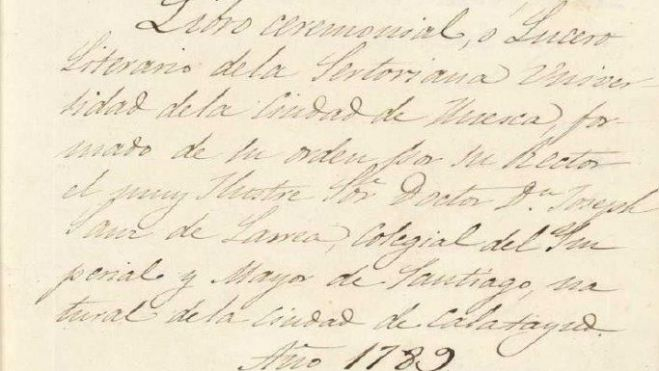 Libro ceremonial, o Lucero
Literario de la Sertoriana Univer-
sidad de la Ciudad de Huesca, for-
mado de su orden por su Rector
el muy Ilustre Sor. Doctor Dn. Joseph
Sanz de Larrea, Colegial del Im
perial y Mayor de Santiago, na
tural de la Ciudad de Calatayud.
Año 1789